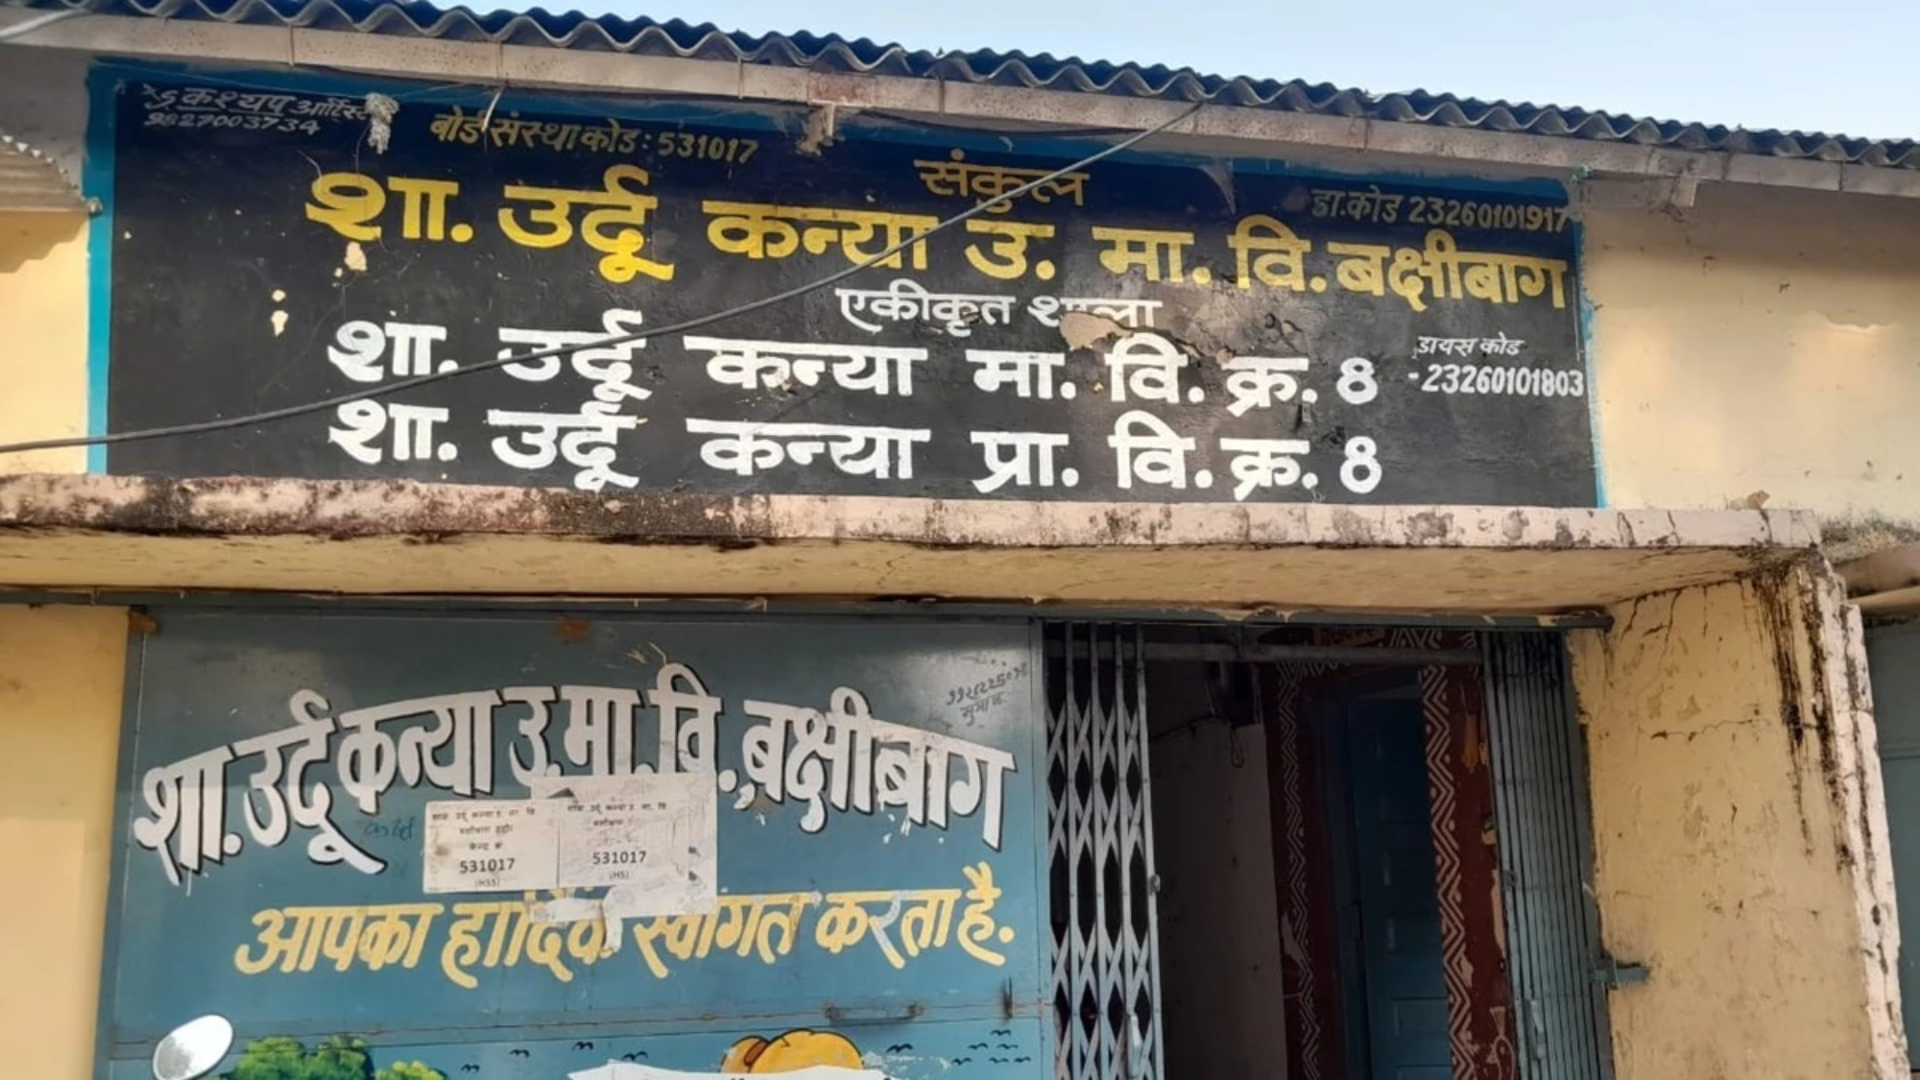 कश्यप आर्टिस्ट
9827003734
बोर्ड संस्था कोड : 531017
संकुल
डा.कोड 23260101917
शा. उर्दू कन्या उ. मा. वि. बक्षीबाग
एकीकृत शाला
शा. उर्दू कन्या मा. वि. क्र. 8
डायस कोड
-23260101803
शा. उर्दू कन्या प्रा. वि. क्र. 8
शा. उर्दू कन्या उ. मा. वि. बक्षीबाग
531017
(HSS)
531017
(HS)
आपका हार्दिक स्वागत करता है.